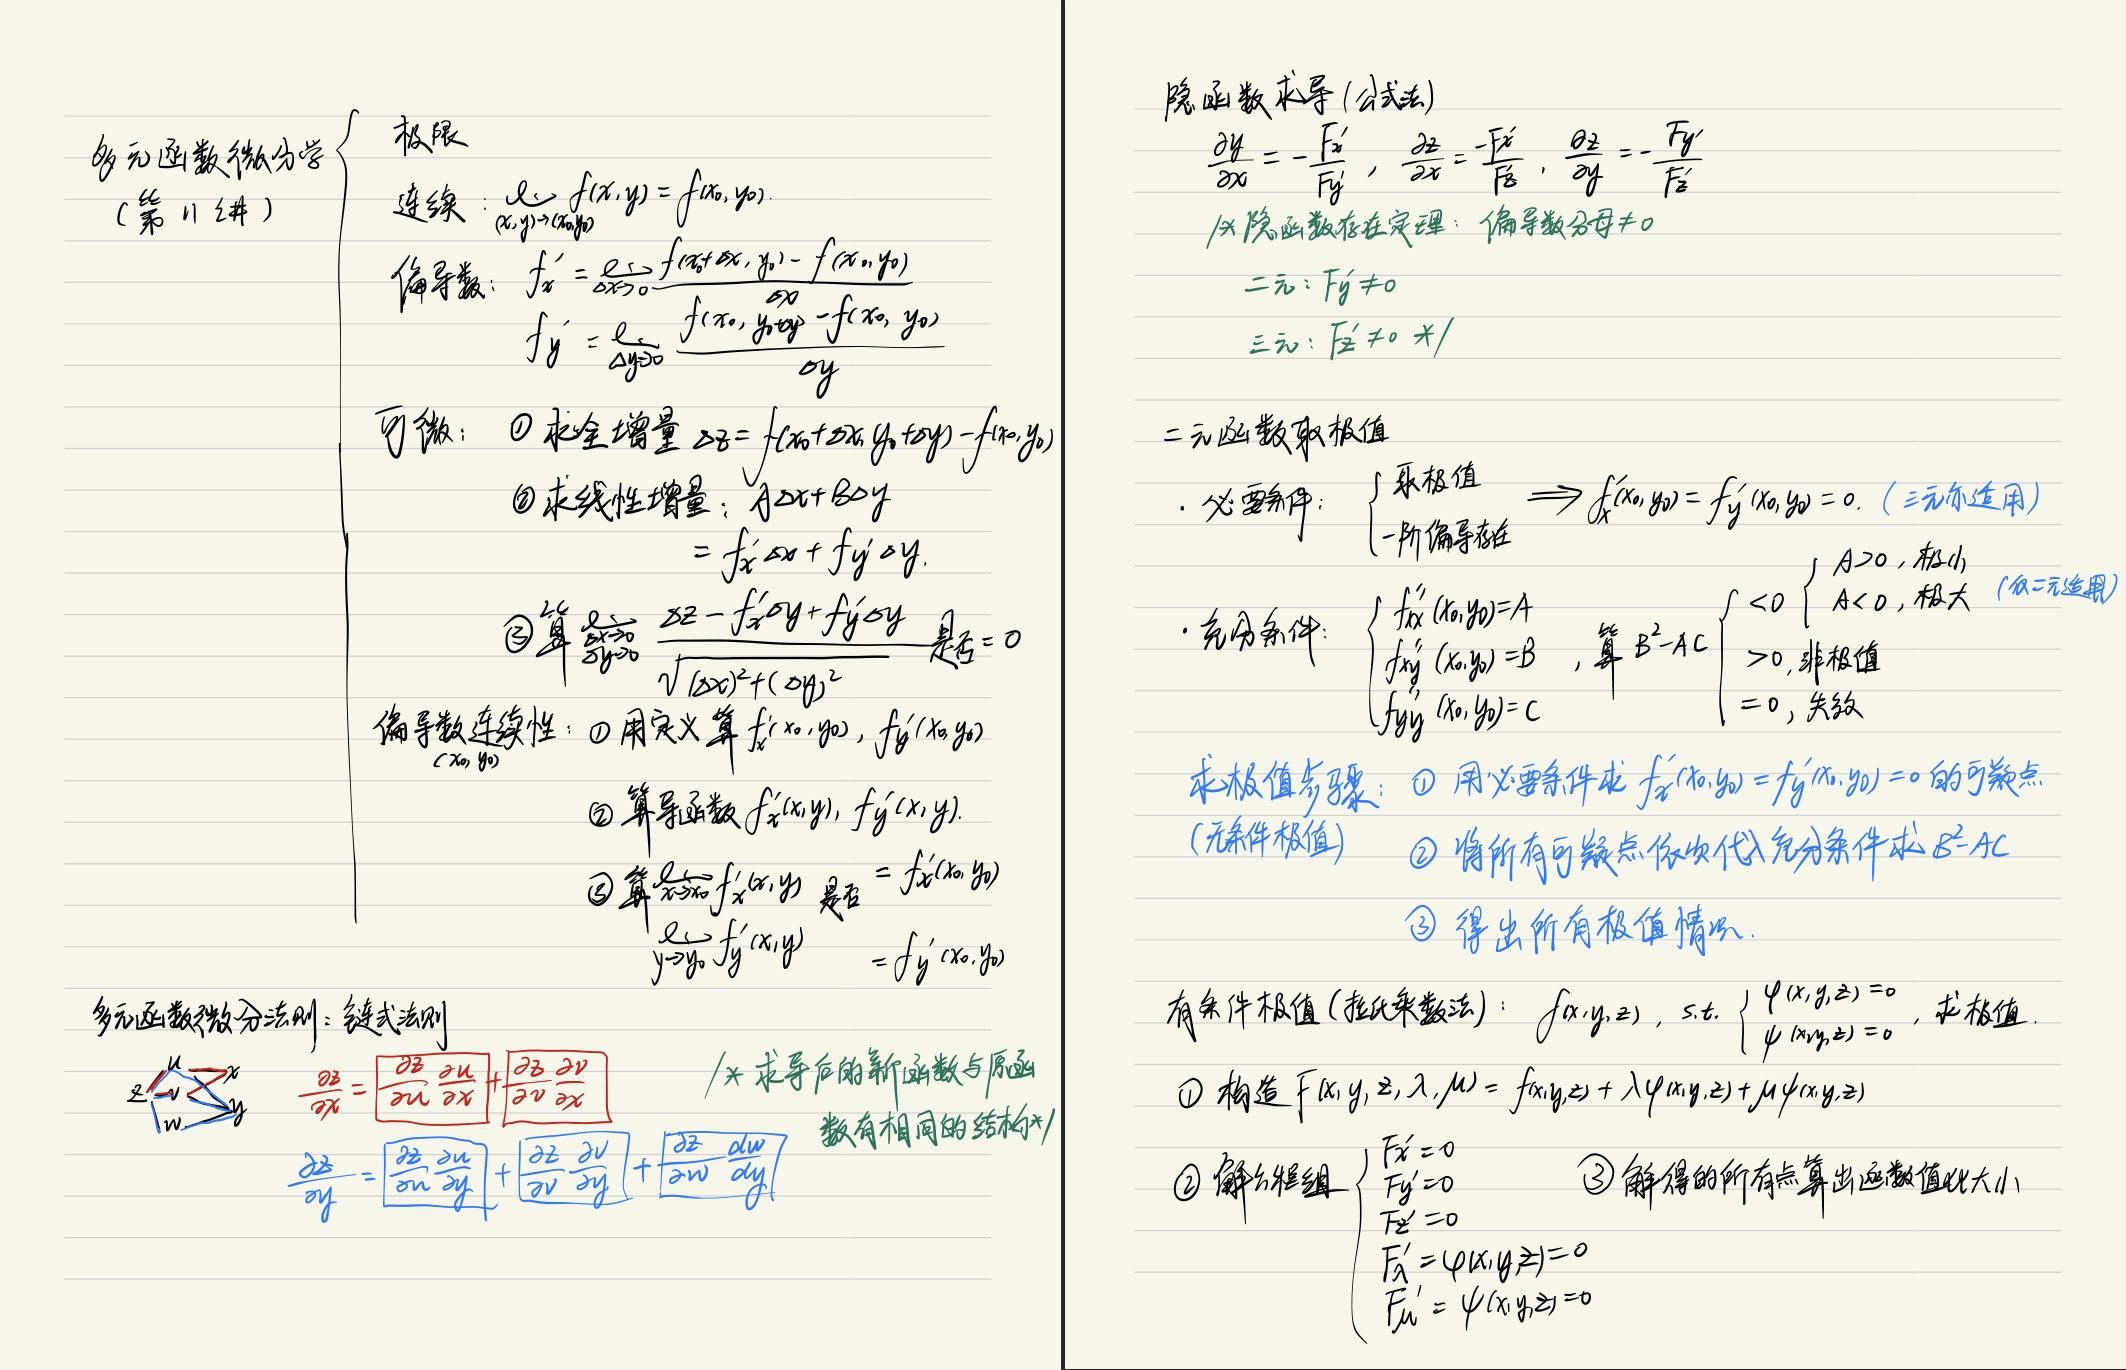 多元函数微分学
(第11讲)
极限
连续: lim (x,y)→(x₀,y₀) f(x,y) = f(x₀,y₀).
偏导数: fx′ = lim Δx→0 [f(x₀+Δx, y₀) - f(x₀,y₀)] / Δx
fy′ = lim Δy→0 [f(x₀, y₀+Δy) - f(x₀, y₀)] / Δy
可微: ① 求全增量 Δz = f(x₀+Δx, y₀+Δy) - f(x₀,y₀)
② 求线性增量: AΔx + BΔy
= fx′Δx + fy′Δy.
③ 算 lim Δx→0 Δy→0 [Δz - fx′Δy + fy′Δy] / √((Δx)²+(Δy)²) 是否 = 0
偏导数连续性: ① 用定义算 fx′(x₀,y₀), fy′(x₀,y₀)
(x₀,y₀)
② 算导函数 fx′(x,y), fy′(x,y).
③ 算 lim x→x₀ fx′(x,y) 是否 = fx′(x₀,y₀)
lim y→y₀ fy′(x,y) = fy′(x₀,y₀)
多元函数微分法则: 链式法则
z u v w x y
∂z/∂x = ∂z/∂u ∂u/∂x + ∂z/∂v ∂v/∂x
/* 求导后的新函数与原函
数有相同的结构 */
∂z/∂y = ∂z/∂u ∂u/∂y + ∂z/∂v ∂v/∂y + ∂z/∂w dw/dy
隐函数求导(公式法)
∂y/∂x = -Fx′/Fy′, ∂z/∂x = -Fx′/Fz′, ∂z/∂y = -Fy′/Fz′
/* 隐函数存在定理: 偏导数分母≠0
二元: Fy′≠0
三元: Fz′≠0 */
二元函数取极值
· 必要条件: { 取极值
一阶偏导存在 ⟹ fx′(x₀,y₀) = fy′(x₀,y₀) = 0. (三元亦适用)
· 充分条件: { fxx″(x₀,y₀)=A
fxy″(x₀,y₀)=B
fyy″(x₀,y₀)=C
, 算 B²-AC { <0 { A>0, 极小
A<0, 极大 (仅二元适用)
>0, 非极值
=0, 失效
求极值步骤: ① 用必要条件求 fx′(x₀,y₀) = fy′(x₀,y₀) = 0 的可疑点
(无条件极值) ② 将所有可疑点依次代入充分条件求 B²-AC
③ 得出所有极值情况.
有条件极值(拉氏乘数法): f(x,y,z), s.t. { φ(x,y,z)=0
ψ(x,y,z)=0 , 求极值.
① 构造 F(x,y,z,λ,μ) = f(x,y,z) + λφ(x,y,z) + μψ(x,y,z)
② 解方程组 { Fx′=0
Fy′=0
Fz′=0
Fλ′=φ(x,y,z)=0
Fμ′=ψ(x,y,z)=0
③ 解得的所有点算出函数值比大小